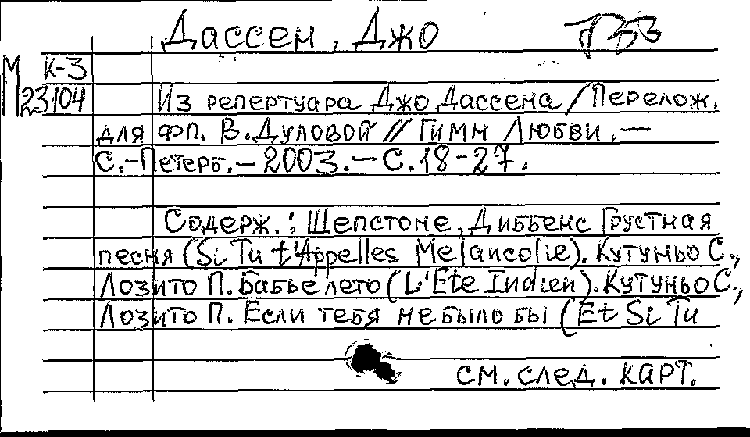 Дассен, Джо
М К-3
23104 Из репертуара Джо Дассена / Перелож.
для фп. В. Дуловой // Гимн Любви. —
С.-Петерб. — 2003. — С. 18-27.
Содерж.: Шепстоне, Диббенс Грустная
песня (Si Tu t'Appelles Melancolie). Кутуньо С.,
Лозито П. Бабье лето (L'Ete Indien). Кутуньо С.,
Лозито П. Если тебя не было бы (Et Si Tu
см. след. карт.